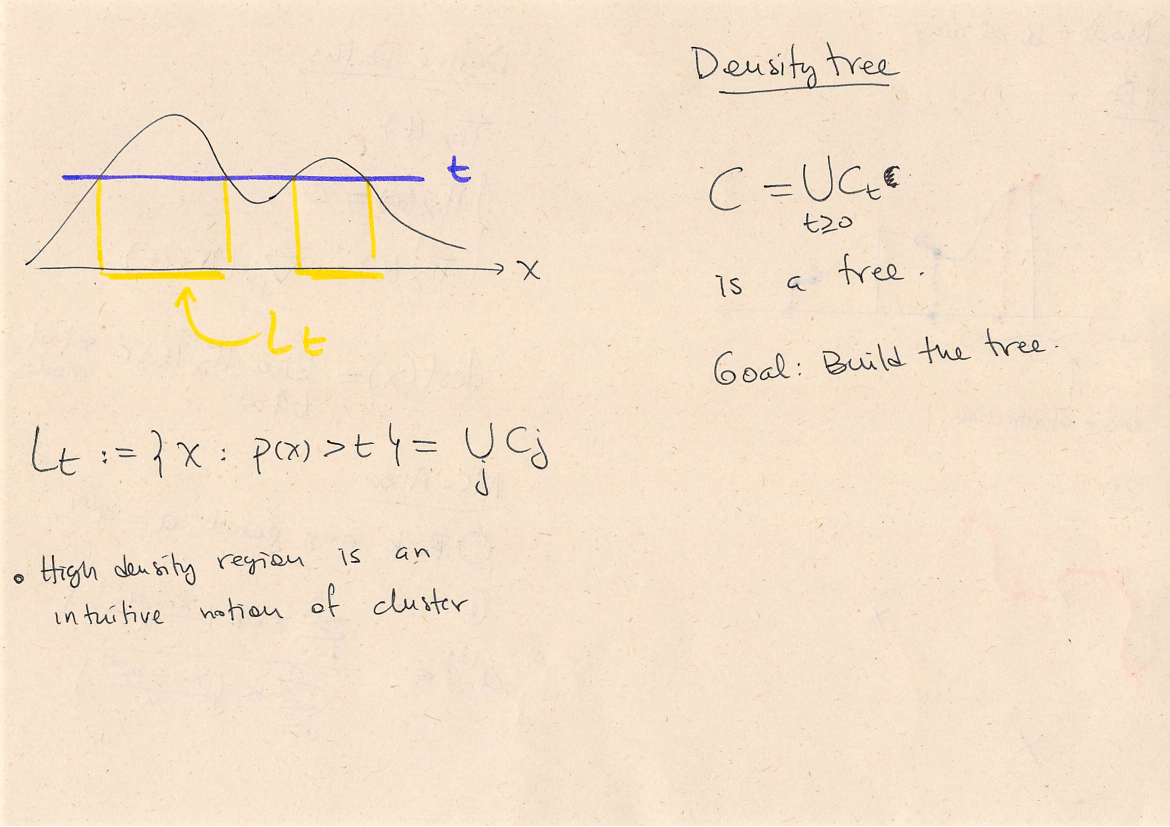 t
x
Lt
Lt := { x : p(x) > t } = ∪ Cj
j
• High density region is an
intuitive notion of cluster
Density tree
C = ∪ Ct
t≥0
is a tree.
Goal: Build the tree.